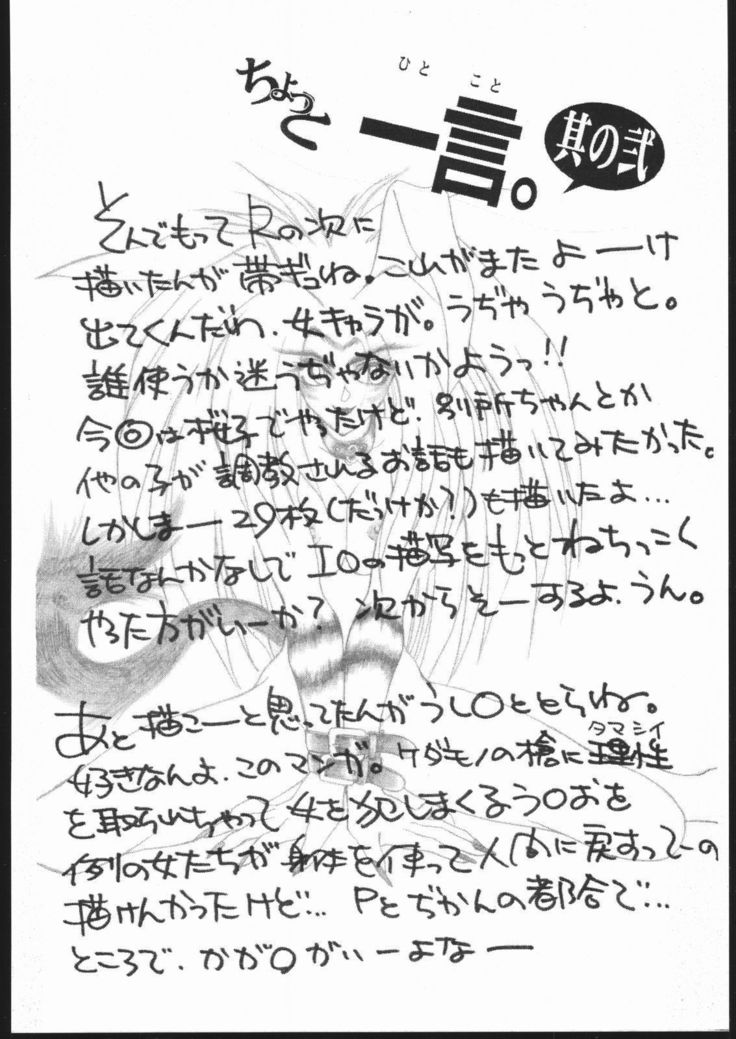 ちょっと一言。其の弐
ひとこと
そんでもってRの次に
描いたんが帯ギュね。こいがまた よーーけ
出てくんだわ、女キャラが。うぢゃ うぢゃと。
誰使うか迷うぢゃないかようっ!!
今◎は桜子でやったけど、別所ちゃんとか
他の子が調教されるお話も描いてみたかった。
しかしまー29枚(だっけか?)も描いたよ…
話なんかなしで IOの描写をもっとねちっこく
やった方がいーか? 次からそーするよ、うん。
あと描こーと思ってたんがうし○ととらね。
タマシイ
好きなんよ、このマンガ。ケダモノの槍に理性
を取らいちゃって女を犯しまくるう○おを
例の女たちが身体を使って人間に戻すってーの
描けんかったけど… Pとぢかんの都合で…
ところで、かが○がいーよなー